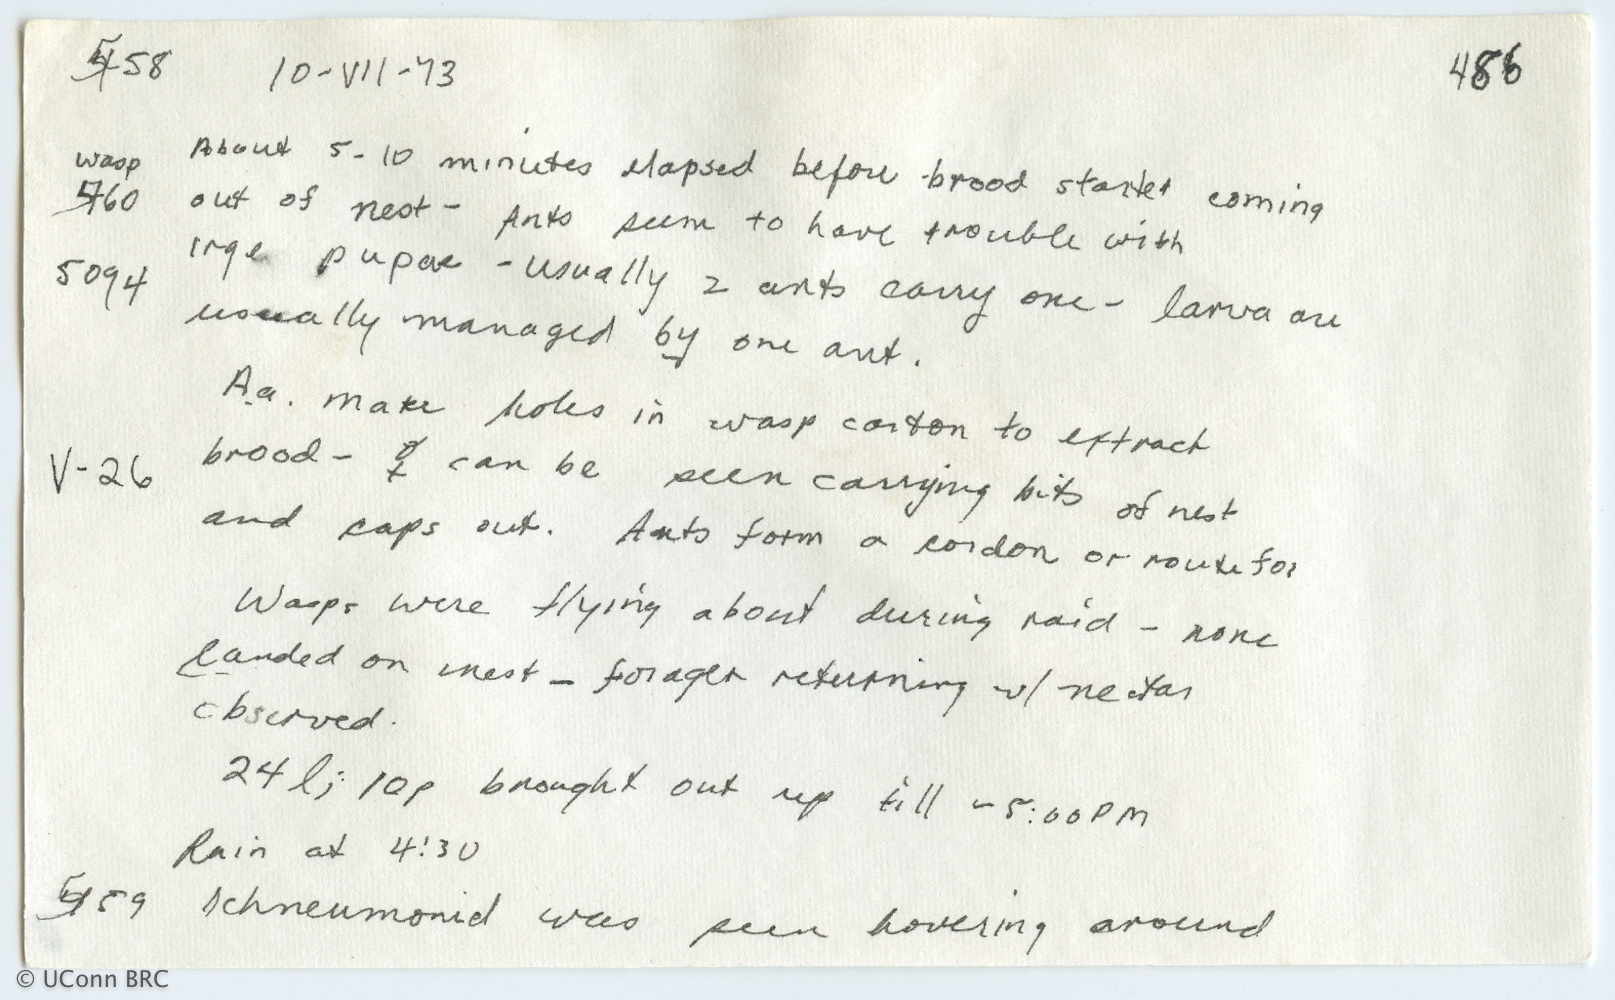 5158 10-VII-73 486
wasp About 5-10 minutes elapsed before brood started coming
5160 out of nest - Ants seem to have trouble with
5094 lrge pupae - usually 2 ants carry one - larva are
usually managed by one ant.
A.a. make holes in wasp carton to extract
V-26 brood - ☿ can be seen carrying bits of nest
and caps out. Ants form a cordon or route for
Wasps were flying about during raid - none
landed on nest - forager returning w/ nectar
observed.
24 l; 10p brought out up till ~5:00PM
Rain at 4:30
5159 Ichneumonid was seen hovering around
© UConn BRC